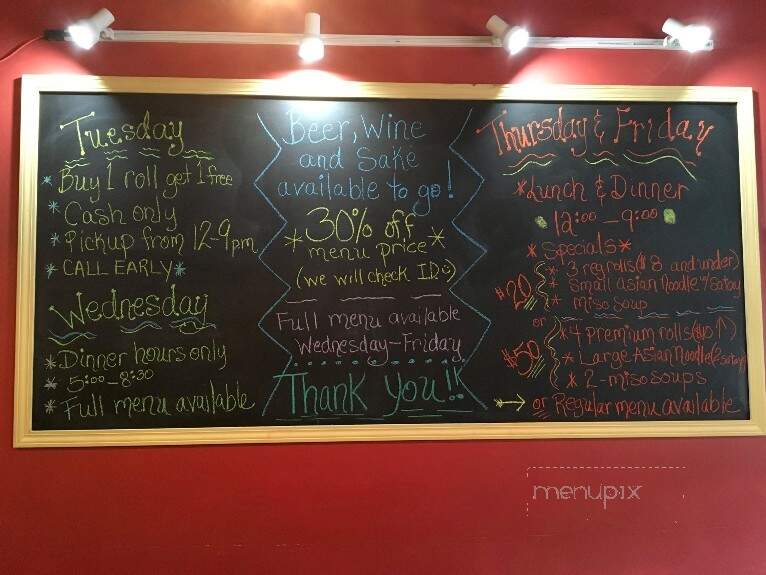 Tuesday
* Buy 1 roll get 1 free
* Cash only
* Pickup from 12-9pm
* CALL EARLY *
Wednesday
* Dinner hours only
* 5:00-8:30
* Full menu available
Beer, Wine
and Sake
available to go!
* 30% off
menu price *
(we will check ID☺)
Full menu available
Wednesday-Friday
Thank You!!
Thursday & Friday
* Lunch & Dinner
12:00-9:00
* Specials *
$20
* 3 reg rolls ($8 and under)
* Small asian noodle
* miso soup
or
$50
* 4 premium rolls ($10 ↑)
* Large Asian Noodle
* 2-miso soups
→ or Regular menu available
menupix